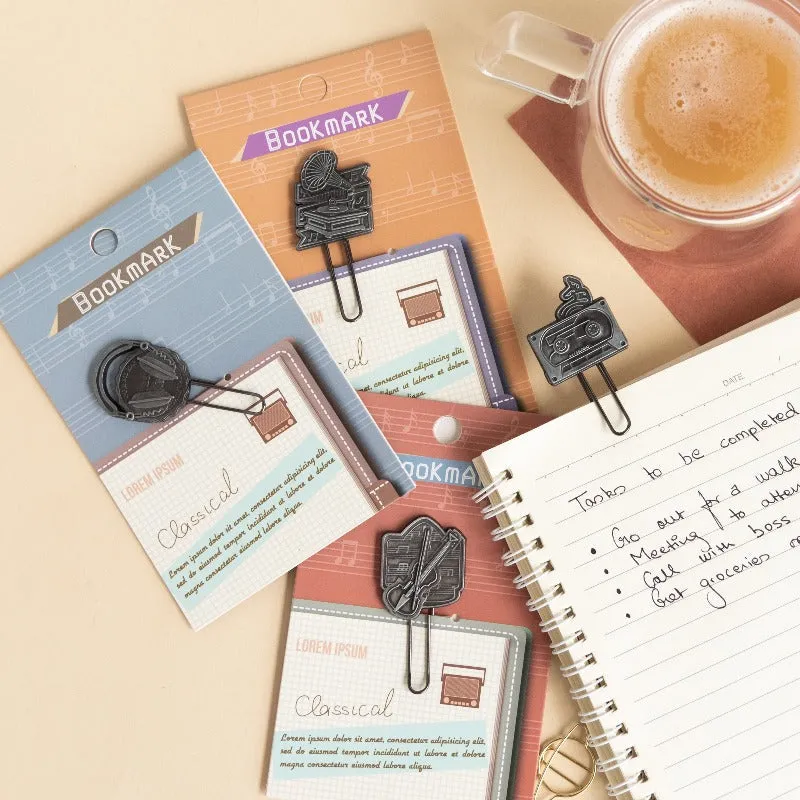 BOOKMARK
UM
al
consectetur adipisicing elit,
incididunt ut labore et dolore
aliqua.
BOOKMARK
LOREM IPSUM
Classical
Lorem ipsum dolor sit amet, consectetur adipisicing elit,
sed do eiusmod tempor incididunt ut labore et dolore
magna consectetur labore aliqua.
OOKMA
LOREM IPSUM
Classical
Lorem ipsum dolor sit amet, consectetur adipisicing elit,
sed do eiusmod tempor incididunt ut labore et dolore
magna consectetur labore aliqua.
DATE
Tasks to be completed
• Go out for a walk
• Meeting to atten
• Call with boss
• Get groceries